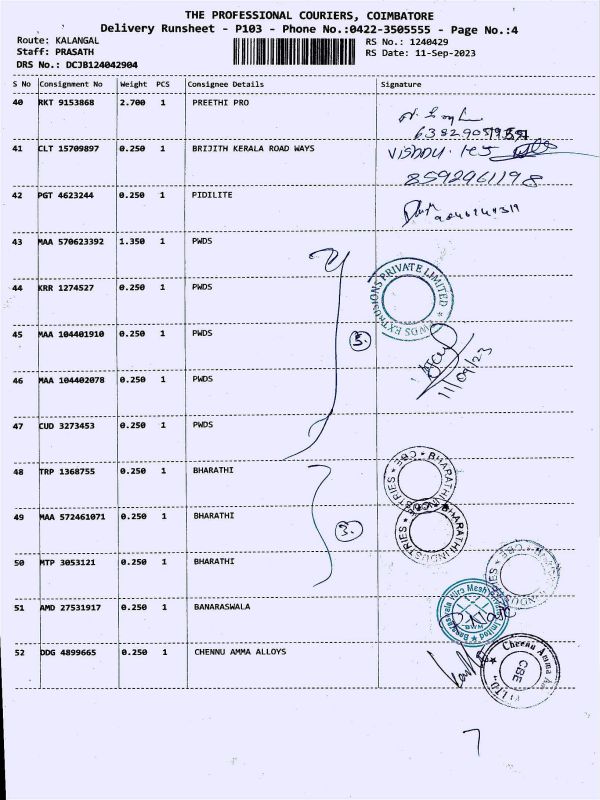 THE PROFESSIONAL COURIERS, COIMBATORE
Delivery Runsheet - P103 - Phone No.:0422-3505555 - Page No.:4
Route: KALANGAL RS No.: 1240429
Staff: PRASATH RS Date: 11-Sep-2023
DRS No.: DCJB124042904
S No Consignment No Weight PCS Consignee Details Signature
40 RKT 9153868 2.700 1 PREETHI PRO
41 CLT 15709897 0.250 1 BRIJITH KERALA ROAD WAYS
8592961198
42 PGT 4623244 0.250 1 PIDILITE
43 MAA 570623392 1.350 1 PWDS
44 KRR 1274527 0.250 1 PWDS
PWDS EXTRUSIONS PRIVATE LIMITED
45 MAA 104401910 0.250 1 PWDS
5.
46 MAA 104402078 0.250 1 PWDS
11/09/23
47 CUD 3273453 0.250 1 PWDS
48 TRP 1368755 0.250 1 BHARATHI
BHARATHI INDUSTRIES * CBE *
49 MAA 572461071 0.250 1 BHARATHI
3.
BHARATHI INDUSTRIES
50 MTP 3053121 0.250 1 BHARATHI
51 AMD 27531917 0.250 1 BANARASWALA
BWM
52 DDG 4899665 0.250 1 CHENNU AMMA ALLOYS
Chennu Amma
CBE
7